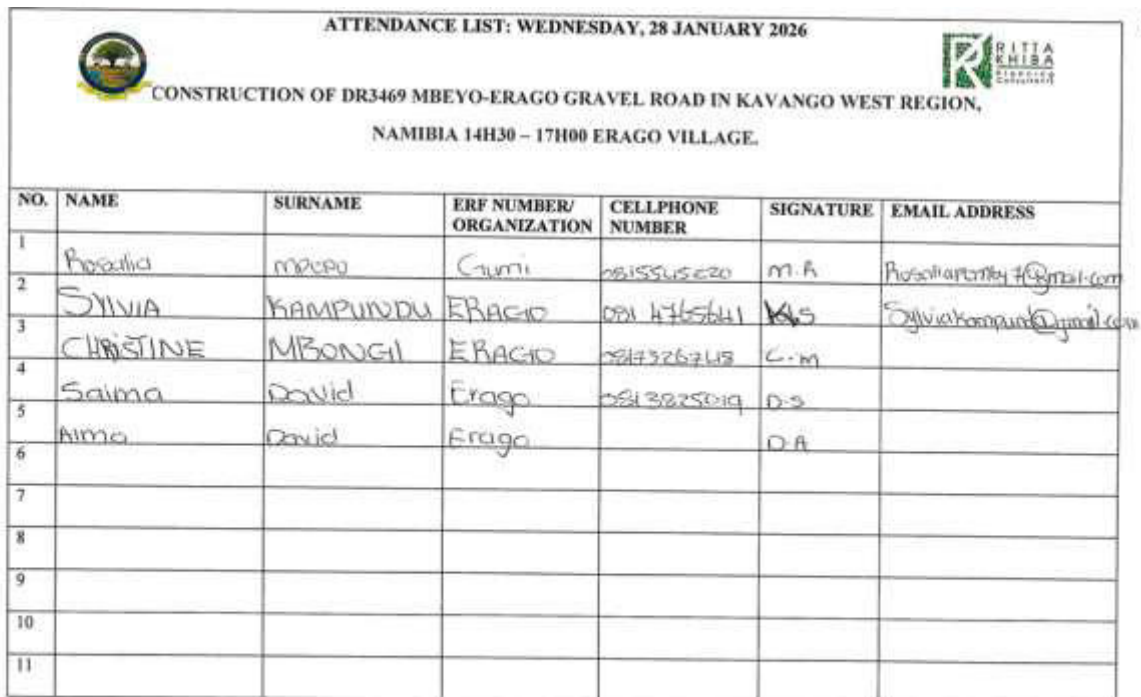 ATTENDANCE LIST: WEDNESDAY, 28 JANUARY 2026
RITTA
KHIBA
Planning
Consultants
CONSTRUCTION OF DR3469 MBEYO-ERAGO GRAVEL ROAD IN KAVANGO WEST REGION,
NAMIBIA 14H30 – 17H00 ERAGO VILLAGE.
NO. NAME SURNAME ERF NUMBER/ ORGANIZATION CELLPHONE NUMBER SIGNATURE EMAIL ADDRESS
1 Rosalia M.R
2 SYLVIA KAMPUNDU ERAGO 081 4765641
3 CHRISTINE MBONGI ERAGO C.m
4 Saima David Erago 0813825019 D.S
5 Alma David Erago D.A
6
7
8
9
10
11